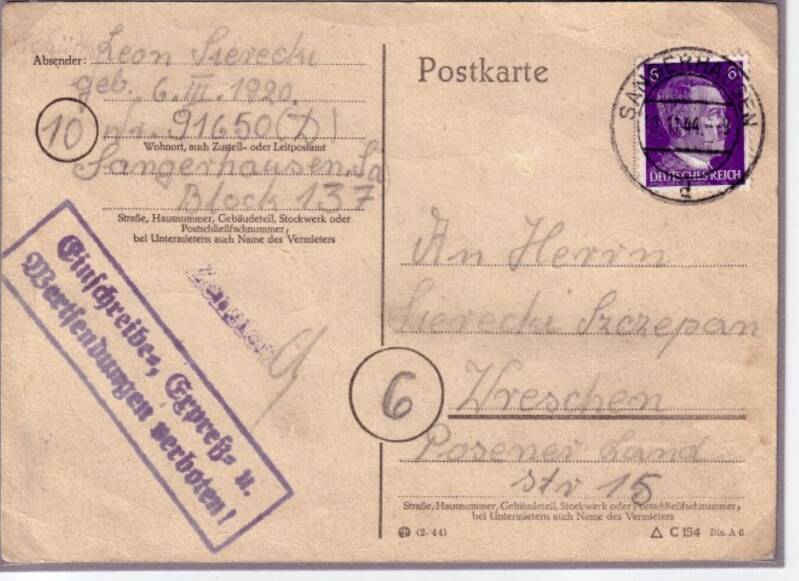 Absender: Leon Sierecki
geb. 6. III. 1920.
10 Nr. 91650(D)
Wohnort, auch Zustell- oder Leitpostamt
Sangerhausen, Sa
Block 137
Straße, Hausnummer, Gebäudeteil, Stockwerk oder
Postschließfachnummer,
bei Untermietern auch Name des Vermieters
Einschreibe-, Expreß- u.
Wertsendungen verboten!
Postkarte
SANGERHAUSEN
44.
a
6 6
DEUTSCHES REICH
An Herrn
Sierecki Szczepan
6 Wreschen
Posener Land
str 15
Straße, Hausnummer, Gebäudeteil, Stockwerk oder Postschließfachnummer,
bei Untermietern auch Name des Vermieters
(2. 44)
C 154 Din A 6